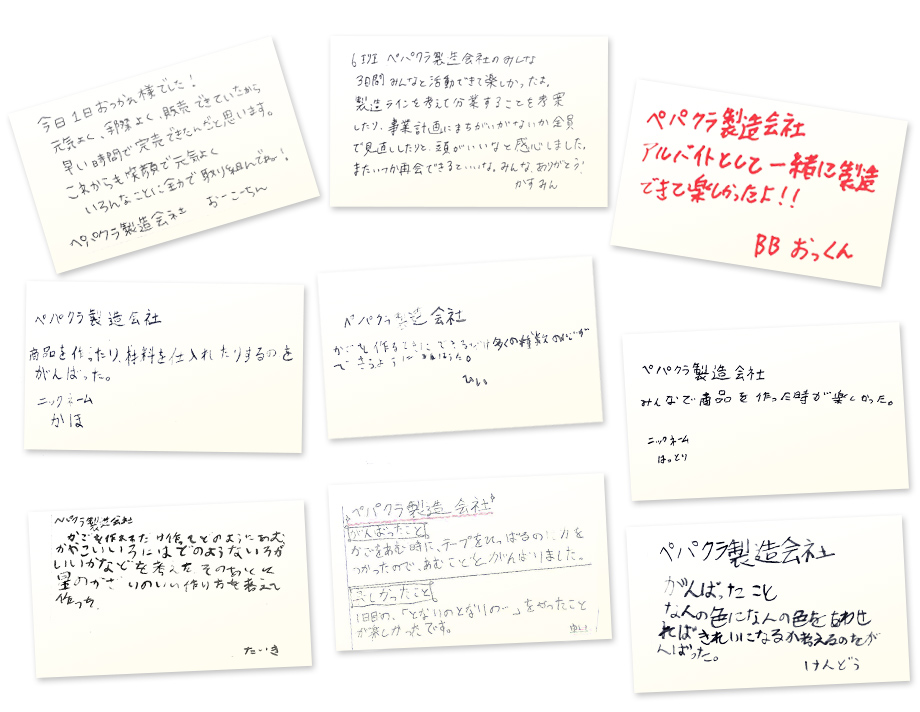 今日1日おつかれ様でした！
元気よく、手際よく、販売できていたから
早い時間で完売できたんだと思います。
これからも笑顔で元気よく
いろんなことに全力で取り組んでね！
ペパクラ製造会社 おーこちん
6班 ペパクラ製造会社のみんな
3日間みんなと活動できて楽しかったよ。
製造ラインを考えて分業することを考案
したり、事業計画にまちがいがないか全員
で見直ししたりと、頭がいいなと感心しました。
またいつか再会できるといいな。みんな、ありがとう！
かすみん
ペパクラ製造会社
アルバイトとして一緒に製造
できて楽しかったよ！！
BB おっくん
ペパクラ製造会社
商品を作ったり、材料を仕入れしたりするのを
がんばった。
ニックネーム
かほ
ペパクラ製造会社
かごを作るときにできるだけ多くの種類のかごが
できるように
ひい
ペパクラ製造会社
みんなで商品を作った時が楽しかった。
ニックネーム
はっとり
ペパクラ製造会社
かごを作るだけ作ってどのようにあむ
かやこいいろにはどのようないろが
いいかなどを考えたそのあとに
星のかざりのいい作り方を考えて
作った
たいき
ペパクラ製造会社
がんばったこと
かごをあむ時に、テープをひっぱるのに力を
つかったので、あむことをがんばりました。
楽しかったこと
1日目の、「となりのとなりの…」をやったこと
が楽しかったです。
ペパクラ製造会社
がんばったこと
なんの色になんの色をあわせ
ればきれいになるか考えるのをが
んばった。
けんどう